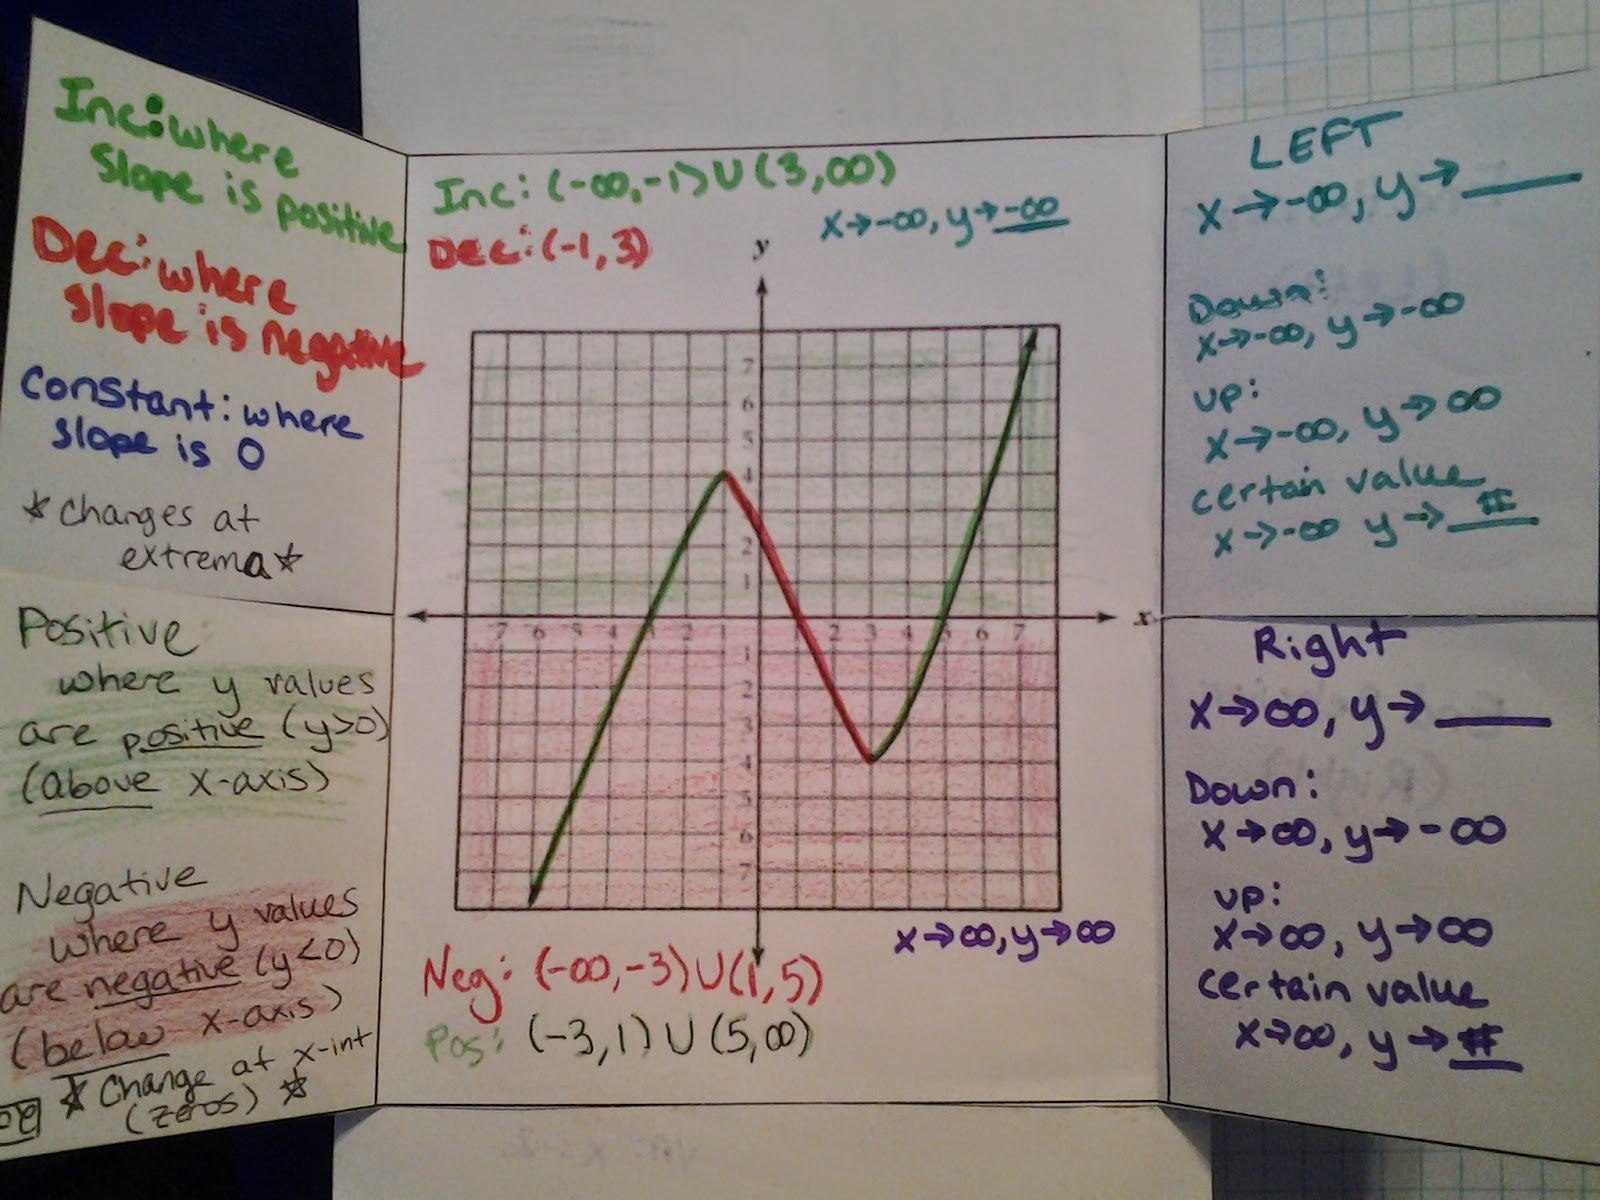 Inc: where
slope is positive
Dec: where
slope is negative
Constant: where
slope is 0
* Changes at
extrema *
Positive
where y values
are positive (y>0)
(above x-axis)
Negative
where y values
are negative (y<0)
(below x-axis)
* Change at x-int
(zeros) *
Inc: (-∞,-1)∪(3,∞)
Dec: (-1,3)
x→-∞, y→-∞
y
7
6
5
4
2
1
x
7 6 5 4 2 2 3 4 5 6 7
1
2
3
4
5
6
7
x→∞, y→∞
Neg: (-∞,-3)∪(1,5)
Pos: (-3,1)∪(5,∞)
LEFT
x→-∞, y→____
Down:
x→-∞, y→-∞
up:
x→-∞, y→∞
certain value
x→-∞ y→#
Right
x→∞, y→____
Down:
x→∞, y→-∞
up:
x→∞, y→∞
certain value
x→∞, y→#